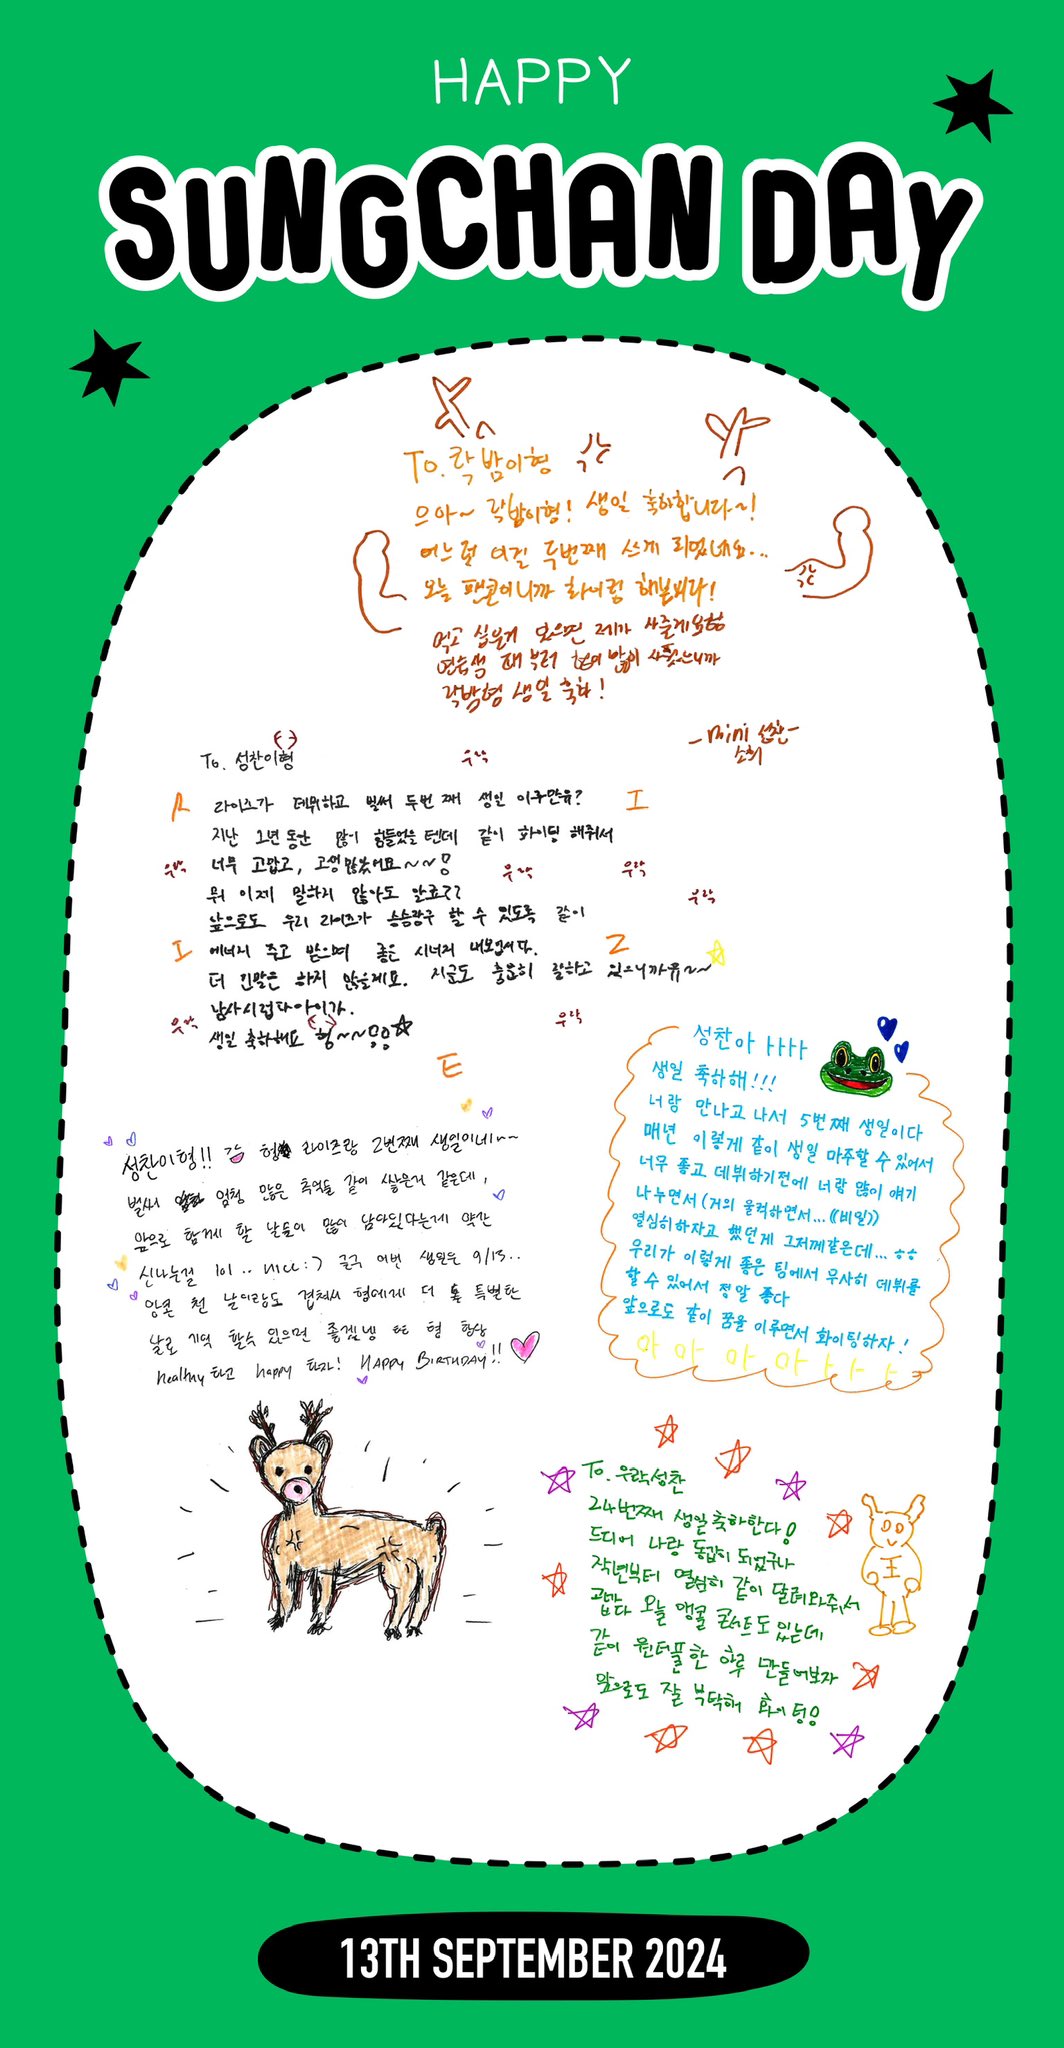 HAPPY
SUNGCHAN DAY
To. 락밤이형
으아~ 락밤이형! 생일 축하합니다~!
어느덧 이걸 두번째 쓰게 되었네요...
오늘 팬콘이니까 화이팅 해봅시다!
먹고 싶은거 있으면 제가 사줄게요형
연습생 때부터 형이 많이 사줬으니까
락밤형 생일 축하!
-mini 성찬-
소희
To. 성찬이형
우락
R
라이즈가 데뷔하고 벌써 두번 째 생일 이구만유?
I
지난 1년 동안 많이 힘들었을 텐데 같이 화이팅 해줘서
우락
너무 고맙고, 고생 많았어요~~!
우락
우락
뭐 이제 말하지 않아도 알죠??
우락
앞으로도 우리 라이즈가 승승장구 할 수 있도록 같이
I
에너지 주고 받으며 좋은 시너지 내봅시다.
Z
더 긴말은 하지 않을게요. 지금도 충분히 잘하고 있으니까유~~
남사시럽다아이가.
우락
생일 축하해요 형~~!!
우락
E
성찬아ㅏㅏㅏㅏ
생일 축하해!!!
너랑 만나고 나서 5번째 생일이다
매년 이렇게 같이 생일 마주할 수 있어서
너무 좋고 데뷔하기전에 너랑 많이 얘기
나누면서(거의 울먹하면서...((비밀))
열심히하자고 했던게 그저께같은데... ㅎㅎ
우리가 이렇게 좋은 팀에서 무사히 데뷔를
할 수 있어서 정말 좋다
앞으로도 같이 꿈을 이루면서 화이팅하자!
아아아아ㅏㅏㅏ
성찬이형!! 형 라이즈랑 2번째 생일이네~~
벌써 엄청 많은 추억들 같이 쌓은거 같은데,
앞으로 함께 할 날들이 많이 남아있다는게 약간
신나는걸 lol .. nice :) 글구 이번 생일은 9/13..
앙콘 첫 날이랑도 겹쳐서 형에게 더 특별한
날로 기억 할수 있으면 좋겠넹 형 항상
healthy 하고 happy 하자! HAPPY BIRTHDAY!!
To. 우락성찬
24번째 생일축하한다!
드디어 나랑 동갑이 되었구나
작년부터 열심히 같이 달려와줘서
고맙다 오늘 앵콜 콘서트도 있는데
같이 원더풀한 하루 만들어보자
앞으로도 잘 부탁해 화이팅!
王
13TH SEPTEMBER 2024